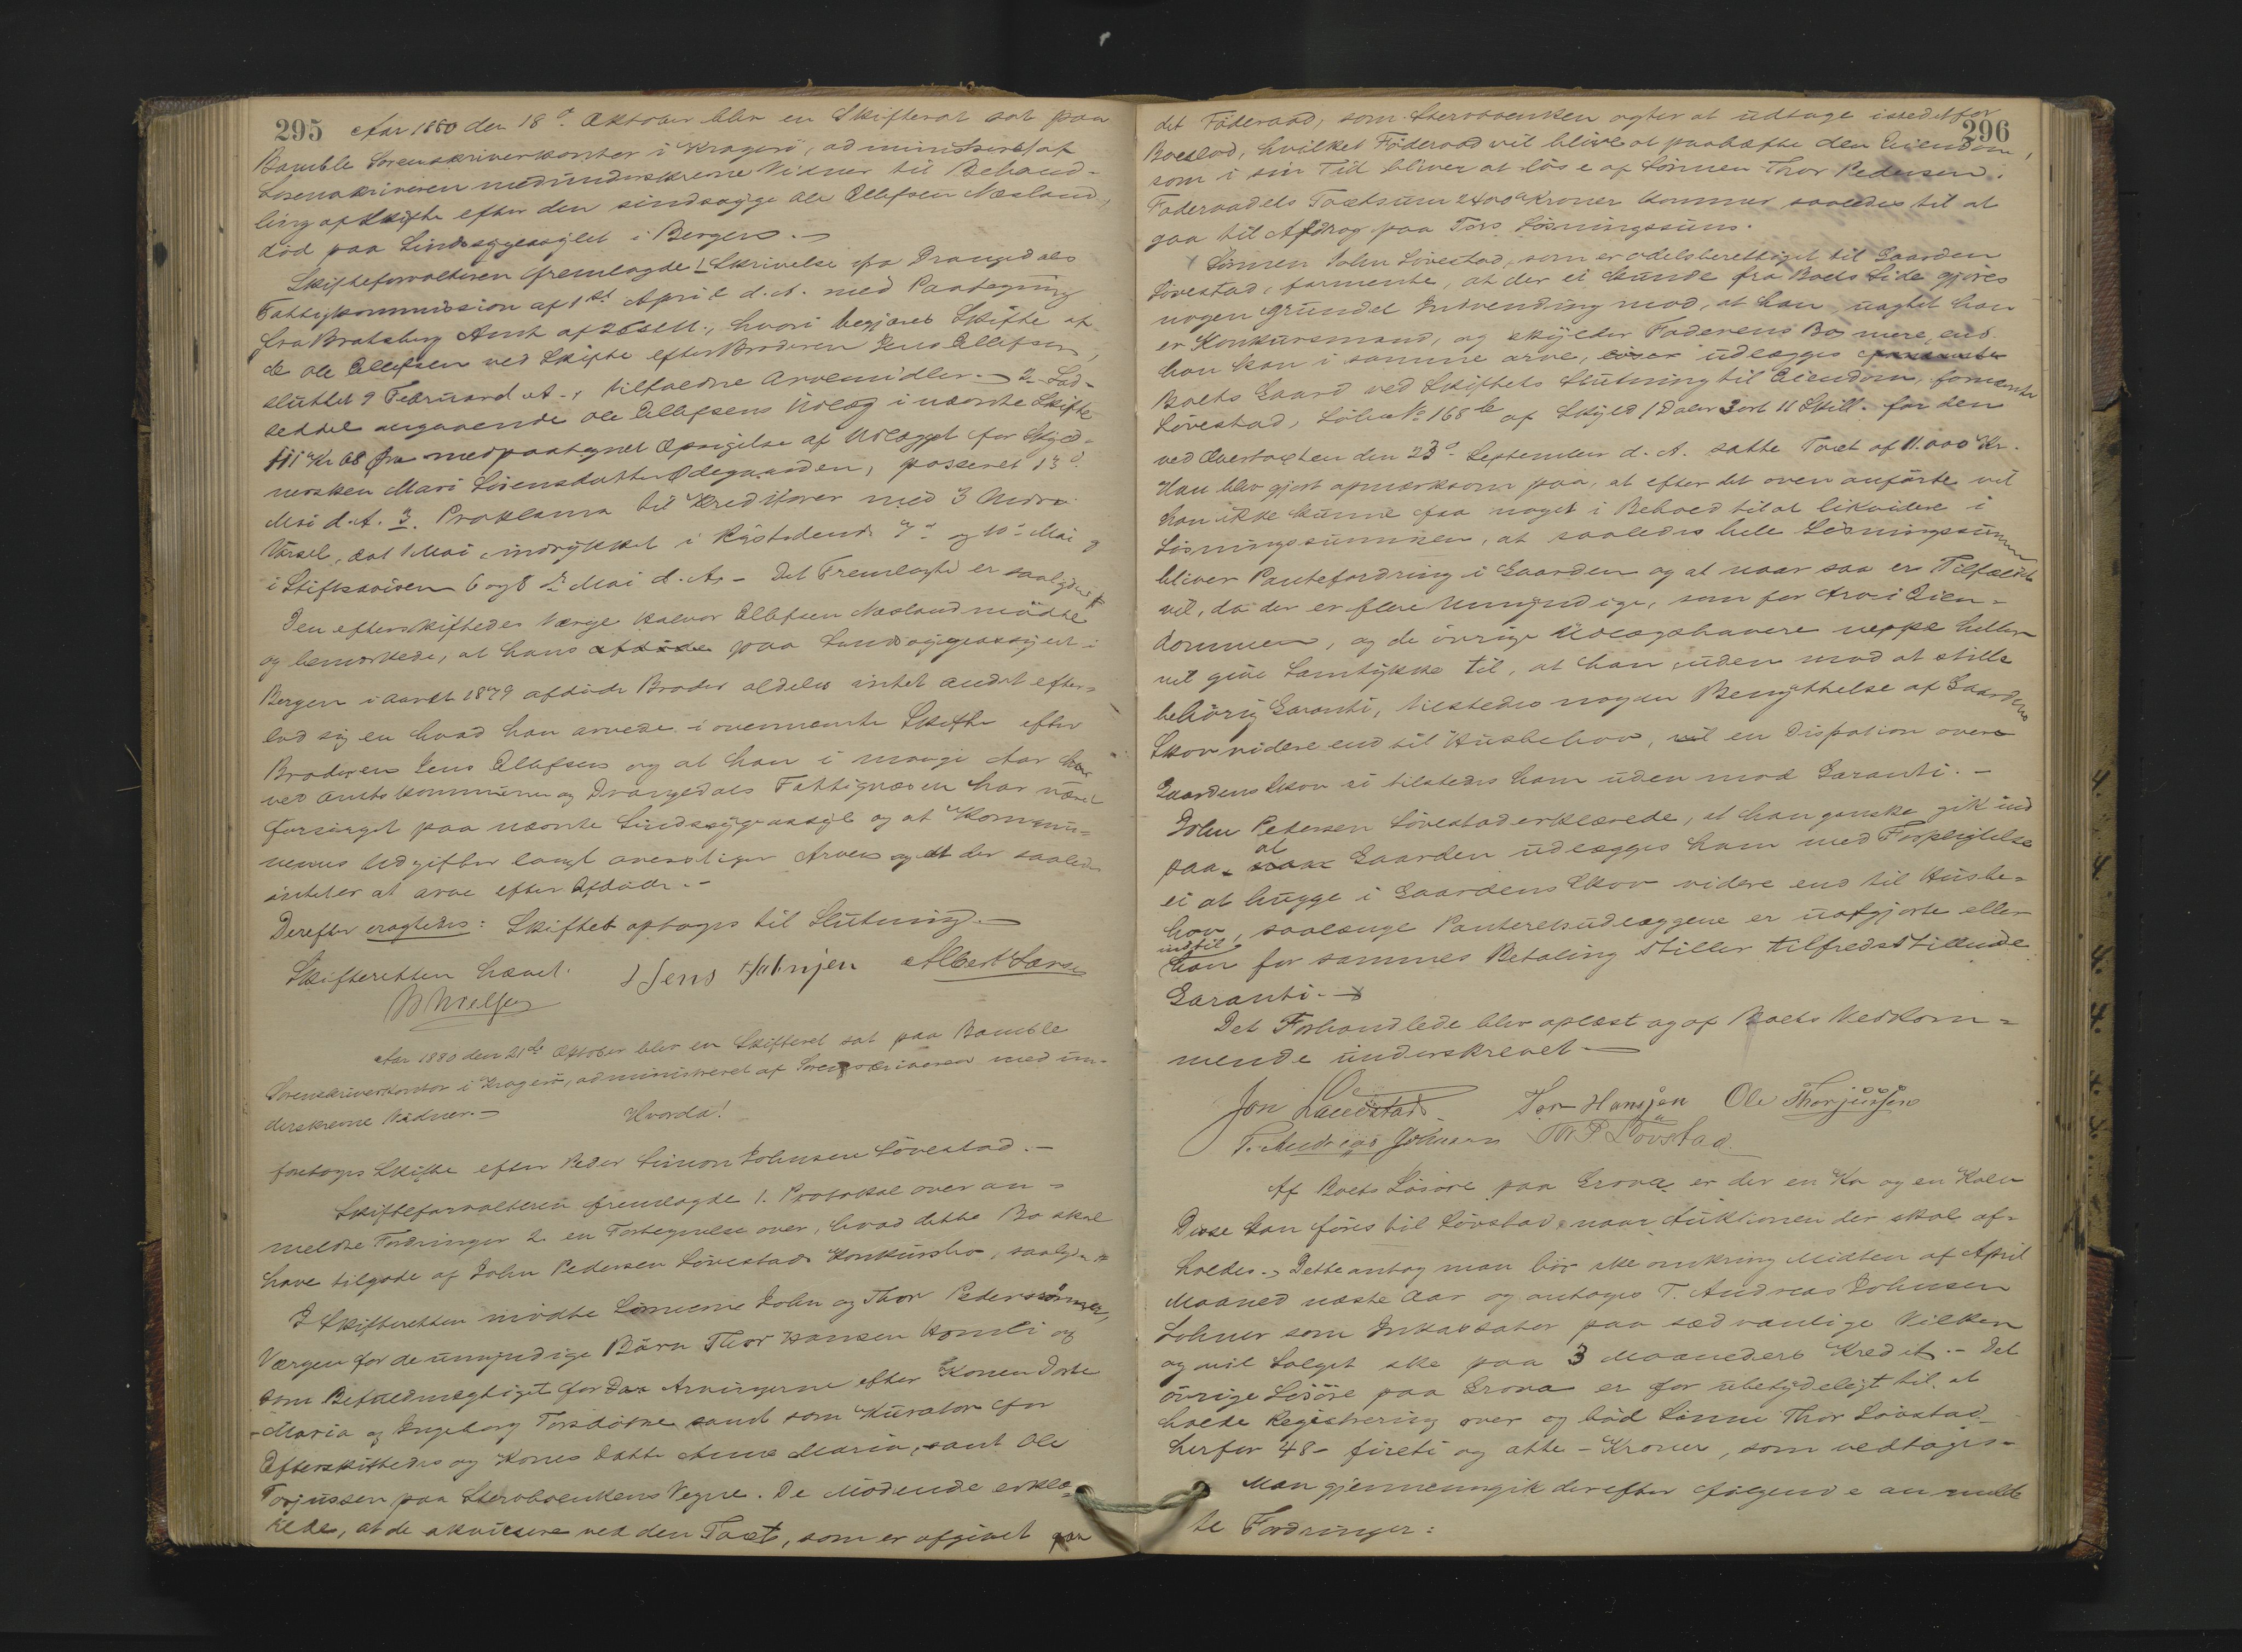 295
Aar 1880 den 18d. Oktober blev en Skifteret sat paa
Bamble Sorenskriverkontor i Kragerö, administreret af
Sorenskriveren med underskrevne Vidner til Behand-
ling af Skifte efter den sindssyge Ole Ellefsen Næsland,
död paa Sindssygeasylet i Bergen. -
Skifteforvalteren fremlagde 1 Skrivelse fra Drangedals
Fattigkommission af 1st April d. A. med Paategning
fra Bratsberg Amt af 26 s. M., hvori begjæres Skifte af
de Ole Ellefsen ved Skifte efter Broderen Jens Ellefsen,
sluttet 9 Februar d. A., tilfaldne Arvemidler. - 2. Lod-
seddel angaaende Ole Ellefsens Udlæg i nævnte Skifte
111 Kr 08 Øre med paategnet Opsigelse af Udlægget for Skyld-
nersken Mari Sörensdatter Ødegaarden, passeret 13d.
Mai d. A. 3. Proklama til Kreditorer med 3 Mdrs
Varsel, dat 1 Mai indrykket i Rigstidende 7d og 10d Mai og
i Stiftsavisen 6 og 8 de Mai d. A. - Det Fremlagte er saalydende
Den efterskiftedes Værge Halvor Ellefsen Næsland mödte
og bemærkede, at hans paa Sindssygeasylet i
Bergen i Aaret 1879 afdöde Broder aldeles intet andet efter-
lod sig en hvad han arvede i ovennævnte Skifte efter
Broderen Jens Ellefsen og at han i mange Aar har
ved Amtskommunen og Drangedals Fattigvæsen har været
forsörget paa nævnte Sindssygeasyl og at Kommu-
nernes Udgifter langt overstiger Arven og at der saaledes
intet er at arve efter Afdöde. -
Derefter eragtedes: Skiftet optages til Slutning. -
Skifteretten hævet.
Jens Halvrjen Albert Larsen
Aar 1880 den 21de Oktober blev en Skifteret sat paa Bamble
Sorenskriverkontor i Kragerö, administreret af Sorenskriveren med un-
derskrevne Vidner. -
Hvorda!
foretoges Skifte efter Peder Simon Johnsen Lövestad. -
Skifteforvalteren fremlagde 1. Protokol over an-
meldte Fordringer 2. en Fortegnelse over, hvad dette Bo skal
have tilgode af John Pedersen Lövestads Konkursbo, saalydende
I Skifteretten mödte Sönnerne John og Thor Pederssönner,
Værgen for de umyndige Börn Thor Hansen Homli og
som Befuldmægtiget for Arvingerne efter Konen Dorte
Maria og Ingeborg Torsdötre samt som Kurator for
Efterskiftedes og Kones Datter Anne Maria, samt Ole
Torjussen paa Stervboenkens Vegne. De Mödende erklæ-
rede, at de akviesere ved den Taxt, som er afgivet paa
296
det Föderaad, som Stervboenken agter at udtage istedetfor
Boeslod, hvilket Föderaad vil blive at paahæfte den Eiendom,
som i sin Tid bliver at löse af Sönnen Thor Pedersen.
Föderaadets Taxtsum 2400 Kroner kommer saaledes til at
gaa til Afdrag paa Tors Lösningssum.
Sönnen John Lövestad, som er odelsberettiget til Gaarden
Lövestad, formente, at der ei kunde fra Boets Side gjöres
nogen grundet Indvending mod, at han, uagtet han
er Konkursmand, og skylder Faderens Bo mere, end
han kan i samme arve, udlægges
Boets Gaard ved Skiftets Slutning til Eiendom, fornævnte
Lövestad, Löbe No 168 b af Skyld 1 Daler 3 ort 11 Skill. for den
ved Overtaxten den 23d September d. A. satte Taxt af 11.000 Kr.
Han blev gjort opmærksom paa, at efter det oven anförte vil
han ikke kunne faa noget i Behold til at likvidere i
Lösningssummen, at saaledes hele Lösningssummen
bliver Pantefordring i Gaarden og at naar saa er Tilfældet
vil, da der er flere Umyndige, som faar Arv i Eien-
dommen, og de övrige Udlægshavere neppe heller
vil give Samtykke til, at han, uden mod at stille
behörig Garanti, tilstedes nogen Benyttelse af Gaardens
Skov videre end til Husbehov, vil en Dispotion over
Gaardens Skov ei tilstedes ham uden mod Garanti. -
John Pedersen Lövestad erklærede, at han ganske gik ind
paa, at Gaarden udlægges ham med Forpligtelse
ei at hugge i Gaardens Skov videre end til Husbe-
hov, saalænge Panteretsudlæggene er uafgjorte eller
indtil han for sammes Betaling stiller tilfredsstillende
Garanti. -
Det Forhandlede blev oplæst og af Boets Vedkom-
mende underskrevet -
Jon Lövestad Tor Hansjen Ole Thorjussen
T. Andreas Johnsen Th P Lövstad.
Af Boets Lösöre paa Grova er der en Ko og en Kalv
Disse kan föres til Lövstad, naar Auktionen der skal af-
holdes. Dette antog man bör ske omkring Midten af April
Maaned næste Aar og antoges T. Andreas Johnsen
Lohner som Inkassator paa sædvanlige Vilkor
og vil Salget ske paa 3 Maaneders Kredit. - Det
övrige Lösöre paa Grova er for ubetydeligt til at
holde Registrering over og böd Sönnen Thor Lövstad
herfor 48 - fireti og otte - Kroner, som vedtoges. -
Man gjennemgik derefter fölgende anmeld-
te Fordringer: